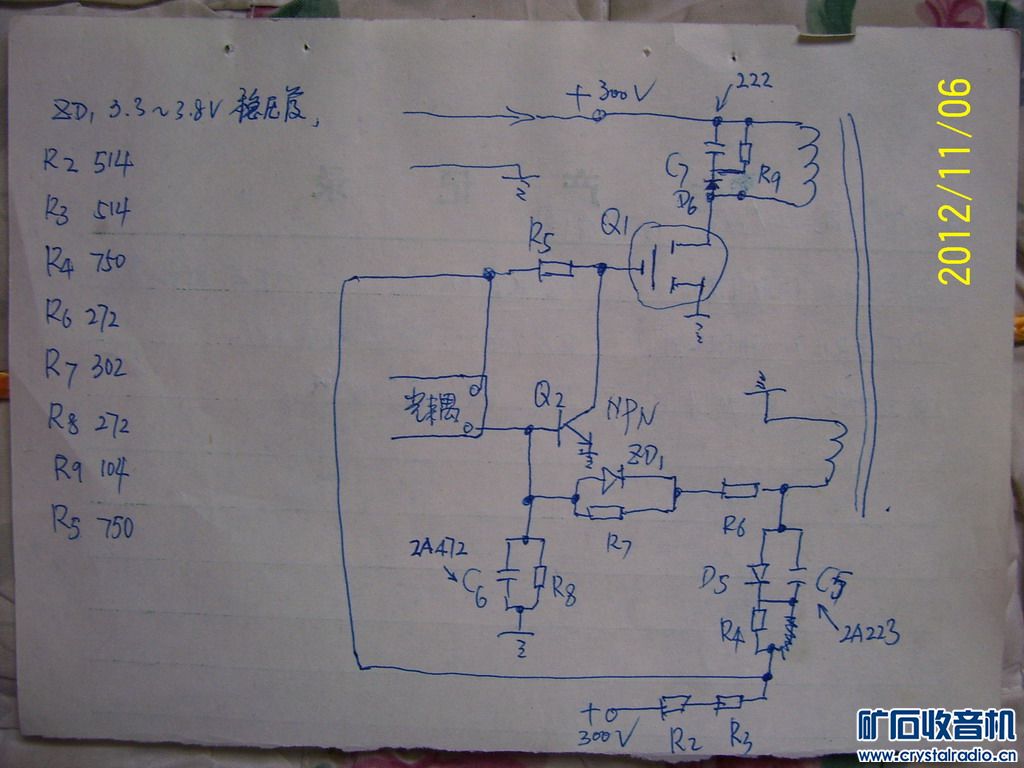 ZD1 3.3~3.8V 稳压管,
R2 514
R3 514
R4 750
R6 272
R7 302
R8 272
R9 104
R5 750
+300V
222
C7
R9
D6
Q1
R5
光耦
Q2
NPN
ZD1
R7
R6
2A472
C6
R8
D5
C5
R4
2A223
+
300V
R2
R3
产 记 录
2012/11/06
矿石收音机
www.crystalradio.cn